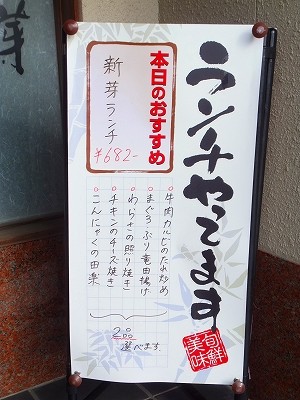 ランチやってます
旬鮮
美味
本日のおすすめ
新芽ランチ
¥682-
牛肉カルビのたれ炒め
まぐろ・ぶり竜田揚げ
わらさの照り焼き
チキンのチーズ焼き
こんにゃくの田楽
2つ
選べます。
芽